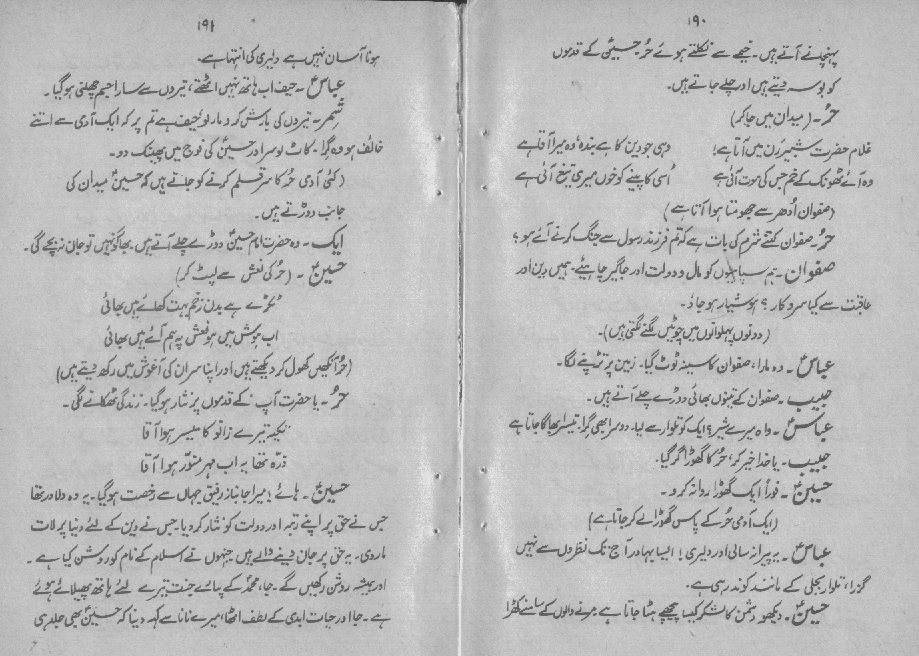 ۱۹۰
پہنچانے آتے ہیں۔ خیمے سے نکلتے ہوئے حُر حسینؑ کے قدموں
کو بوسہ دیتے ہیں اور چلے جاتے ہیں۔
حُر۔ (میدان میں جاکر)
غلام حضرت شبیر رن میں آتا ہے! وہی جو دین کا ہے بندہ وہ میرا آقا ہے
وہ آئے ٹھونک کے خم جس کی موت آئی ہے اُسی کا پینے کو خوں میری تیغ آئی ہے
(صفوان اُدھر سے جھومتا ہوا آتا ہے)
حُر۔ صفوان کتنے شرم کی بات ہے کہ تم فرزند رسول سے جنگ کرنے آئے ہو؟
صفوان۔ ہم سپاہیوں کو مال و دولت اور جاگیر چاہیئے۔ ہمیں دین اور
عاقبت سے کیا سروکار؟ ہوشیار ہو جاؤ۔
(دونوں پہلوانوں میں چوٹیں لگنے لگتی ہیں)۔
عباسؑ۔ وہ مارا، صفوان کا سینہ ٹوٹ گیا۔ زمین پر تڑپنے لگا۔
حبیب۔ صفوان کے تینوں بھائی دوڑے چلے آتے ہیں۔
عباسؑ۔ واہ میرے شیر! ایک کو تلوار سے لیا۔ دوسرا بھی گرا۔ تیسرا بھاگا جاتا ہے
حبیب۔ یا خدا خیر کر، حُر کا گھوڑا گر گیا۔
حسینؑ۔ فوراً ایک گھوڑا روانہ کرو۔
(ایک آدمی حُر کے پاس گھوڑا لے کر جاتا ہے)
عباسؑ۔ یہ پیرانہ سالی اور دلیری! ایسا بہادر آج تک نظروں سے نہیں
گزرا، تلوار بجلی کے مانند کوند رہی ہے۔
حسینؑ۔ دیکھو دشمن کا لشکر کیسا پیچھے ہٹا جاتا ہے مرنے والوں کے سامنے کھڑا
۱۹۱
ہونا آسان نہیں ہے دلیری کی انتہا ہے۔
عباسؑ۔ حیف اب ہاتھ نہیں اٹھتے، تیروں سے سارا جسم چھلنی ہو گیا۔
شمر۔ تیروں کی بارش کر دو مار لو حیف ہے تم پر کہ ایک آدمی سے اتنے
خائف ہو وہ گرا۔ کاٹ لو سر اور حسینؑ کی فوج میں پھینک دو۔
(کئی آدمی حُر کا سر قلم کرنے کو جاتے ہیں کہ حسینؑ میدان کی
جانب دوڑتے ہیں۔
ایک۔ وہ حضرت امام حسینؑ دوڑے چلے آتے ہیں۔ بھاگو نہیں تو جان نہ بچے گی۔
حسینؑ۔ (حُر کی نعش سے لپٹ کر)
ٹکڑے ہے بدن زخم بہت کھائے ہیں بھائی
اب ہوش میں ہو نعش پہ ہم آئے ہیں بھائی
(حُر آنکھیں کھول کر دیکھتے ہیں اور اپنا سر ان کی آغوش میں رکھ دیتے ہیں)
حُر۔ یا حضرت آپ کے قدموں پر نثار ہو گیا۔ زندگی ٹھکانے لگی۔
تکیہ تیرے زانو کا میسر ہوا آقا
ذرّہ تھا یہ اب مہر منوّر ہوا آقا
حسینؑ۔ ہائے! میرا جانباز رفیق جہاں سے رخصت ہو گیا۔ یہ وہ دلاور تھا
جس نے حق پر اپنے رتبہ اور دولت کو نثار کر دیا۔ جس نے دین کے لئے دنیا پر لات
مار دی۔ یہ حق پر جان دینے والے ہیں جنہوں نے اسلام کے نام کو روشن کیا ہے۔
اور ہمیشہ روشن رکھیں گے۔ جا، محمدؐ کے پیارے جنت تیرے لئے ہاتھ پھیلائے ہوئے
ہے۔ جا اور حیات ابدی کے لطف اٹھا، میرے نانا سے کہہ دینا کہ حسینؑ بھی جلد ہی